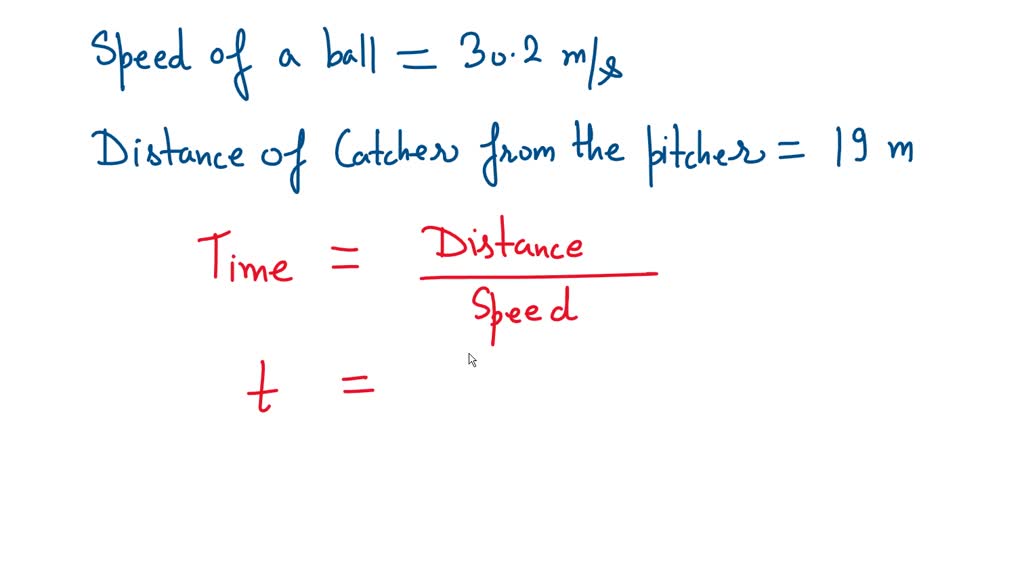 Speed of a ball = 30.2 m/s
Distance of Catcher from the pitcher = 19 m
Time = Distance
Speed
t =